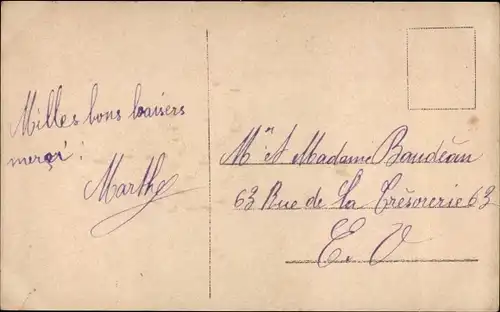 Milles bons baisers
merçi !
Marthe
Mr et Madame Baudéan
63 Rue de la Trèsorerie 63
E. V